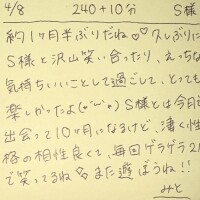 4/8 240+10分 S様
約1ヶ月半ぶりだね♡♡久しぶりに
S様と沢山笑い合ったり、えっちな
気持ちいいことして過ごして、とっても
楽しかったよ(*´ω`*) S様とは今月で
出会って10ヶ月になるけど、凄く性
格の相性良くて、毎回ゲラゲラ2人
で笑ってるね また遊ぼうね!!
みと